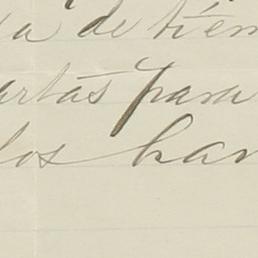 a de tiem
artas para
los han